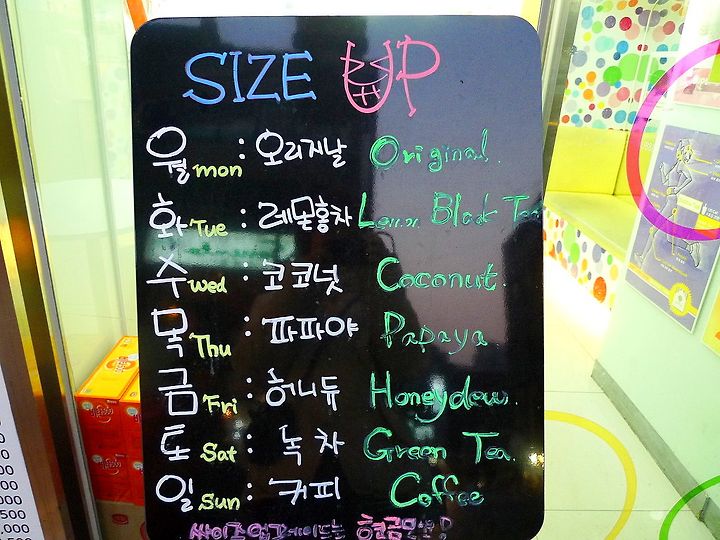 SIZE UP
월 mon : 오리지날 Original.
화 Tue : 레몬홍차 Lemon Black Tea
수 wed : 코코넛 Coconut.
목 Thu : 파파야 Papaya
금 Fri : 허니듀 Honeydew.
토 Sat : 녹차 Green Tea.
일 Sun : 커피 Coffee
싸이즈업그레이드는 현금만